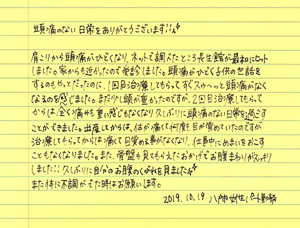 頭痛のない日常をありがとうございます!!
肩こりから頭痛がひどくなり、ネットで調べたところ長生館が最初にヒット
しました。家からも近かったので受診しました。頭痛がひどく子供の世話を
するのもやっとだったのに、1回目治療してもらってすぐスゥ〜っと頭痛がなく
なるのを感じました。まだ少し頭が重かったのですが、2回目治療してもらって
からは、全く痛みも重い感じもなくなり久しぶりに頭痛のない日常を過ごす
ことができました。出産してからは、体が痛くて何度も目が覚めていたのですが
治療してもらってからは痛くて目覚める事がなくなり、仕事中にめまいをおこす
こともなくなりました。また、骨盤も見てもらえたおかげでお腹まわりがスッキリ
しました!!久しぶりに自分のお腹のくびれを見ました
また体に不調がでた時はお願いします。
2019.10.19 八潮市 女性